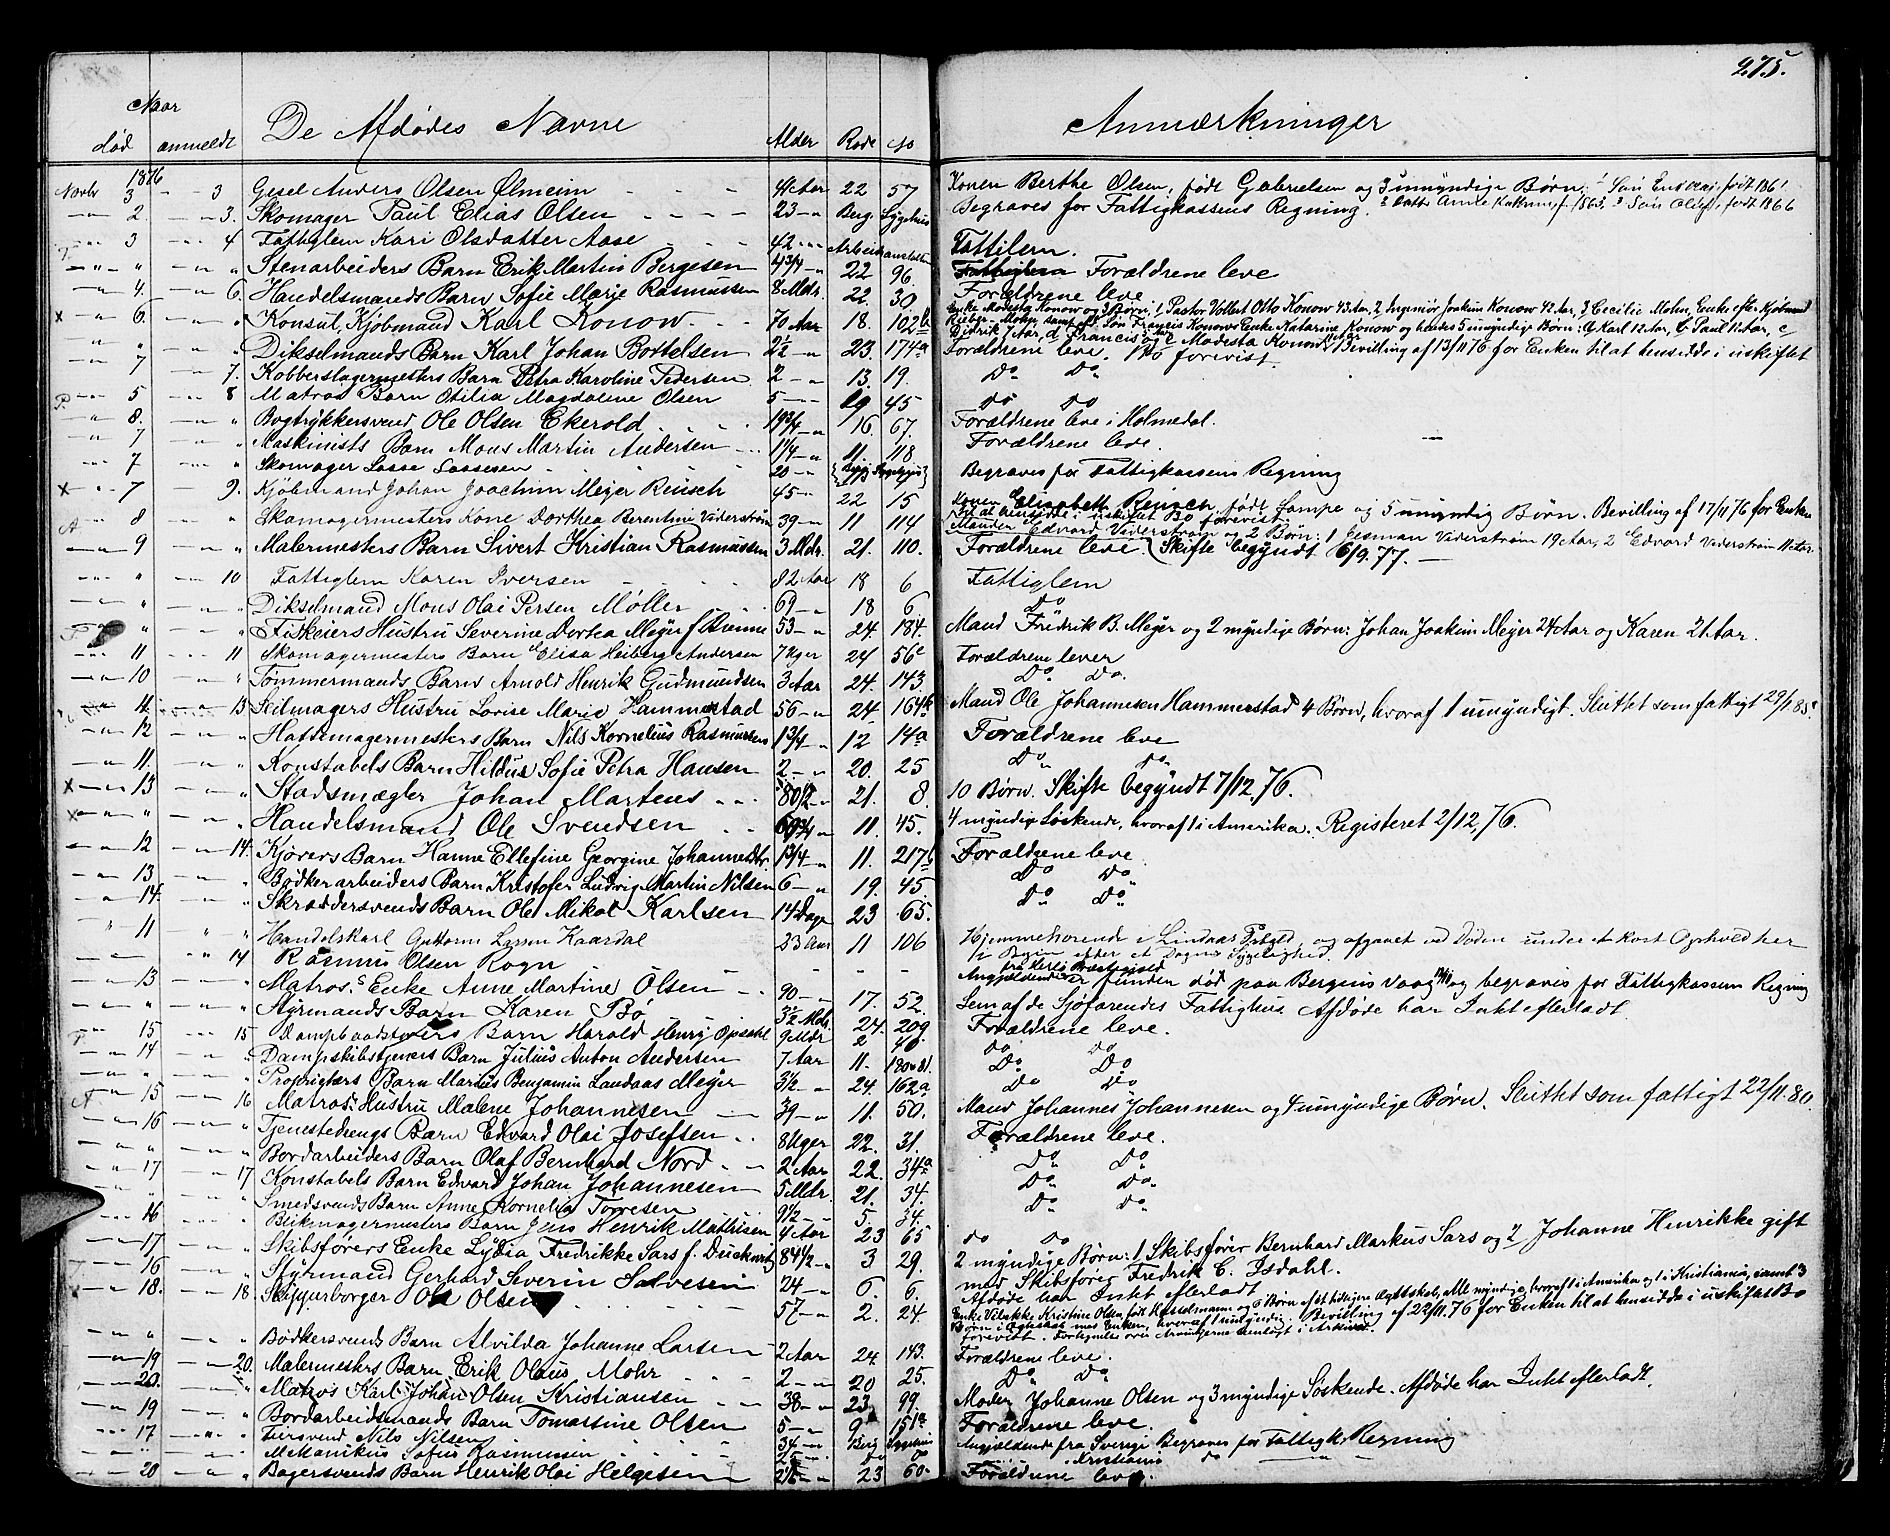 275.
Naar
død anmeldt De Afdødes Navne Alder Rode No Anmærkninger
1876
Novbr 3 - - 3 Gesel Anders Olsen Ølmeim 41 Aar 22 57 Konen Berthe Olsen, født Gabrielsen og 3 umyndige Børn: 1 Søn født 1861
2. 3. Skomager Paul Elias Olsen 23 Berg. Sygehus Begraves for Fattigkassens Regning. 2 Datter f. 1863, 3 Søn Oluf, født 1866
3 4 Fattiglem Kari Olsdatter Aase 42 Arbeidsanstalten Fattiglem.
" " Stenarbeiders Barn Erik Martin Bergesen 4 3/4 22 96. Forældrene leve
4. 6. Handelsmands Barn Sofie Marie Rasmussen 8 Mdr. 22. 30 Forældrene leve
x 6. " Konsul, Kjøbmand Karl Konow. 70 Aar 18. 102b Enke Modesta Konow og 3 Børn, 1 Pastor Vollert Otto Konow 43 Aar, 2 Ingeniør Joakim Konow 42 Aar, 3 Cecilie Mohn, Enke efter Kjøbmand
Mohn samt afd. Søn Francis Konows Enke Katarine Konow og hendes 5 umyndige Børn: a Karl 12 Aar, b Paul 11 Aar, c
Didrik 7 Aar, d Francis og e Modesta Konow. Bevilling af 13/11 76 for Enken til at hensidde i uskiftet
" " Dikselmands Barn Karl Johan Bottelsen 2 1/2 23. 174a Forældrene leve. Bo forevist.
7 7. Kobberslagermesters Barn Petra Karoline Pedersen 2 13. 19. Do Do
5 8 Matros Barn Otilia Magdalene Olsen 5 19 45 Do Do
8. " Bogtrykkersvend Ole Olsen Ekerold 19 3/4 16. 67. Forældrene leve i Holmedal.
7 " Maskinists Barn Mons Martin Andersen 1 1/4 11. 118 Forældrene leve.
7 " Skomager Lasse Lassesen 20 Begraves for Fattigkassens Regning
x 7 9. Kjøbmand Johan Joachim Meyer Reusch 45 22 15 Konen Elisabeth Reusch, født Lampe og 5 umyndig Børn. Bevilling af 17/11 76 for Enken
til at hensidde i uskiftet Bo forevist
A 8 " Skomagermesters Kone Dorthea Berentine Viderstrøm 39 11 114 Manden Edvard Viderstrøm og 2 Børn: 1 Viderstrøm 19 Aar, 2 Edvard Viderstrøm 11 Aar
9 " Malermesters Barn Sivert Kristian Rasmussen 3 Mdr. 21. 110. Forældrene leve. (Skifte begyndt 6/9. 77.
" 10 Fattiglem Karen Iversen 82 Aar 18 6 Fattiglem
" " Dikselmand Mons Olai Persen Møller 69 18 6 Do
" " Fiskeiers Hustru Severine Dortea Meyer f 53 24. 184. Mand Fredrik B. Meyer og 2 myndige Børn: Johan Joakim Meyer 24 Aar og Karen 21 Aar.
11 11 Skomagermesters Barn Elisa Heiberg Andersen 7 Uger 24 56c Forældrene lever
10 " Tømmermands Barn Arnold Henrik Gudmundsen 3 Aar 24. 143. Do Do.
11. 13 Seilmagers Hustru Lovise Marie Hammerstad 56 24 164b Mand Ole Johannesen Hammerstad 4 Børn, hvoraf 1 umyndigt. Sluttet som fattigt 29/1. 85.
12 " Hattemagermesters Barn Nils Kornelius Rasmussen 1 3/4 12 14a Forældrene leve
11. " Konstabels Barn Hildus Sofie Petra Hansen 2 20. 25 Do Do
x 13 " Stadsmægler Johan Martens 80 1/2 21. 8. 10 Børn. Skifte begyndt 7/12. 76.
x " " Handelsmand Ole Svendsen 11. 45. 4 myndig Søskende, hvoraf 1 i Amerika. Registeret 2/12, 76.
12 14. Kjørers Barn Hanne Ellefine Georgine Johannesdtr. 1 3/4 11. 217b Forældrene leve
13 " Bødkerarbeiders Barn Kristofer Ludvig Martin Nilsen 6 19. 45. Do Do
14. " Skræddersvends Barn Ole Mikal Karlsen 14 Dage 23 65. Do Do
11 " Handelskarl Guttorm Larsen Kaardal 23 Aar 11 106 Hjemmehørende i Lindaas Prgjld, og afgaaet ved Døden under et kort Ophold her
i Byen efter et Døgns Sygelighed.
" 14 Rasmus Olsen Rogn fra Herlø Præstegjeld
Angjeldende er funden død paa Bergens Vaag og begraves for Fattigkassens Regning
13 " Matros's Enke Anne Martine Olsen 90 17. 52. Lem af de Sjøfarendes Fattighus Afdøde har Intet efterladt.
" " Styrmands Barn Karen Bø 3 1/2 Mdr. 24. 209 Forældrene leve.
15 15 Dampbaadsførers Barn Harald Henrij Opdahl 9 Mdr 2 40. Do Do
14 " Dampskibstjeners Barn Julius Anton Andersen 7 Aar 11. Do Do
" " Proprietærs Barn Marius Benjamin Landaas Meyer 3 1/2 24. 162a Do Do
A 15 16 Matros's Hustru Malene Johannesen 39 11. 50. Mand Johannes Johannesen og 4 umyndige Børn. Sluttet som fattigt 22/11. 80.
16 " Tjenestedrengs Barn Edvard Olai Josefsen 8 Uger 22. 31. Forældrene leve.
" " Bordarbeiders Barn Olaf Bernhard Nord 2 Aar 22. 34a Do Do
17 17 Konstabels Barn Edvard Johan Johannesen 5 Mdr. 21. 34. Do Do
" " Smedsvends Barn Anne Kornelia Torresen 9 1/2 5. 34. Do Do
16 " Blikmagermesters Barn Jens Henrik Mathisen 4 Aar 23 65 Do Do
17. " Skibsførers Enke Lydia Fredrikke Sars f. Duckwitz 84 1/2 3 29. 2 myndige Børn: 1 Skibsfører Bernhard Markus Sars og 2 Johanne Henrikke gift
med Skibsfører Fredrik C. Isdahl.
16 " Styrmand Gerhard Severin Salvesen 24 6. 6. Afdøde har Intet efterladt
18. 18 Skipperborger Ole Olsen 57 2. 24. Enke Kristine Olsen, født og 6 Børn af dt tidligere Ægteskab, alle myndige, hvoraf 1 i Amerika og 1 i Kristiania, samt 3
Børn i Ægteskab med Enken, hvoraf 1 umyndig. Bevilling af 22/11. 76 for Enken til at hensidde i uskiftet Bo
forevist. Fortegnelse over Arvingerne henlagt i Arkivet.
" " Bødkersvends Barn Alvilda Johanne Larsen 2 Aar 24. 143. Forældrene leve.
19 20. Malermesters Barn Erik Olaus Mohr 2 20 25. Do Do
20. " Matros Karl Johan Olsen Kristiansen 38 23 99. Moder Johanne Olsen og 3 myndige Søskende. Afdøde har Intet efterladt.
19 " Bordarbeidsmands Barn Tomastine Olsen 5 9 151a Forældrene leve.
17 " Nils Nilsen 34 Berg Sygehus Angjældende fra Sverige Begraves for Fattigk. Regning
" " Mekanikus Sofus Rasmussen 25 Do Do Kristiania Do
20 " Bagersvends Barn Henrik Olai Helgesen 23 60. Forældrene leve.